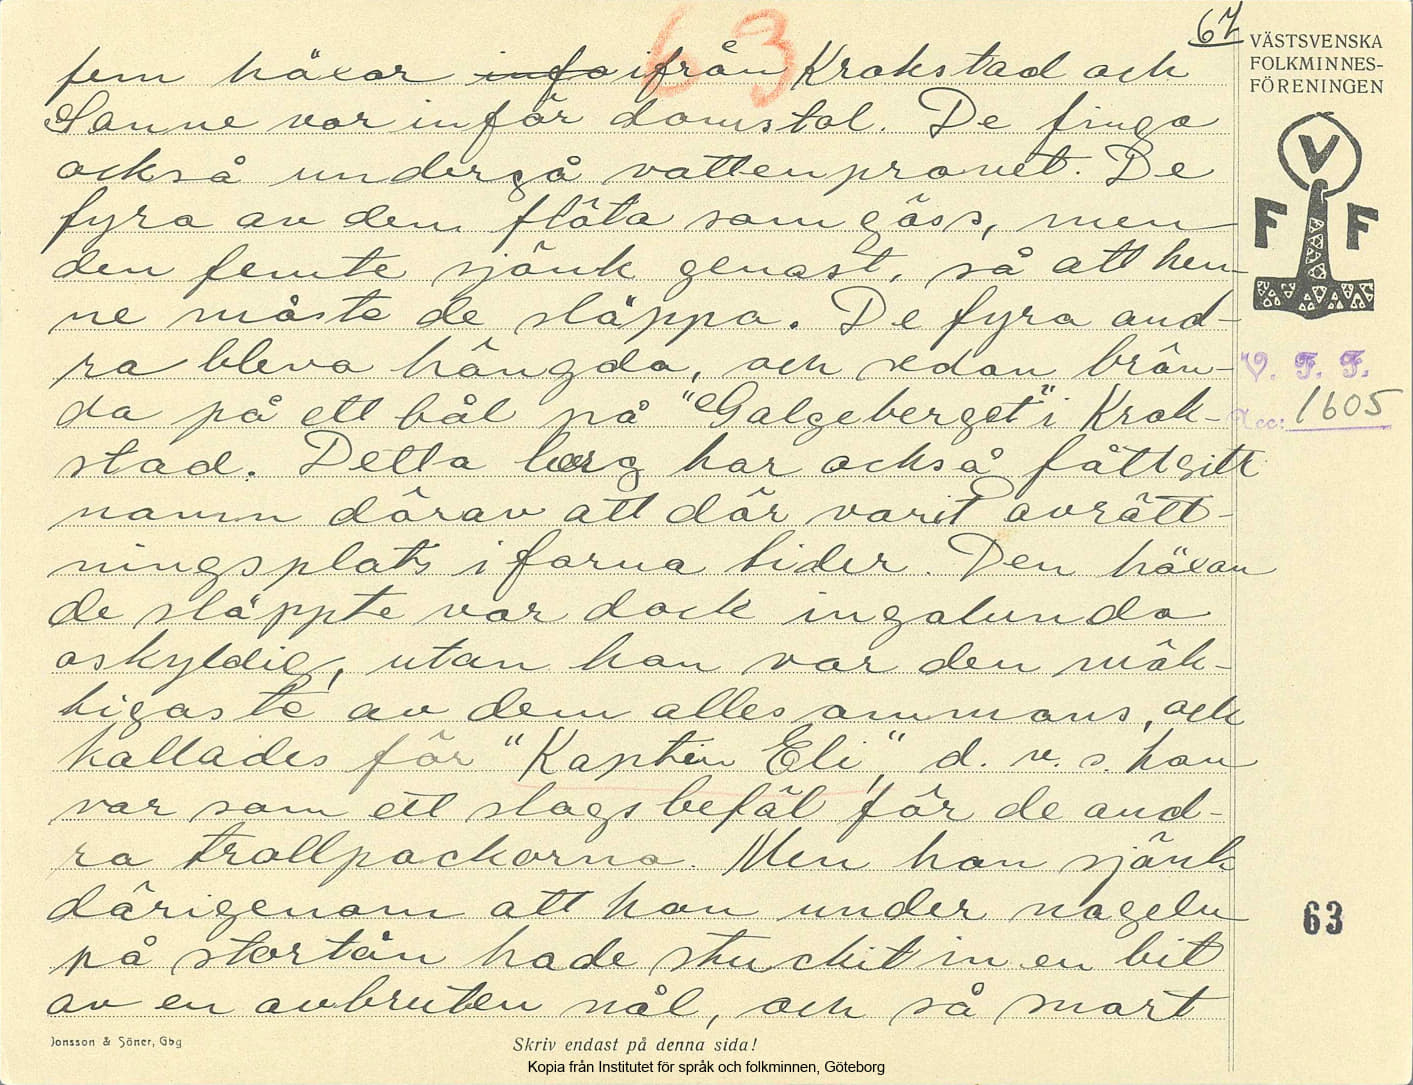 67
63
VÄSTSVENSKA
FOLKMINNES-
FÖRENINGEN
V
F F
V. F. F.
Acc: 1605
fem häxor info ifrån Krokstad och
Sanne var inför domstol. De fingo
också undergå vattenprovet. De
fyra av dem flöto som gäss, men
den femte sjönk genast, så att hen-
ne måste de släppa. De fyra and-
ra blevo hängda, och sedan brän-
da på ett bål på "Galgeberget" i Krok-
stad. Detta berg har också fått sitt
namn därav att där varit avrätt-
ningsplats i forna tider. Den häxan
de släppte var dock ingalunda
oskyldig, utan hon var den mäk-
tigaste av dem allesammans, och
kallades för "Kaptein Eli", d. v. s. hon
var som ett slags befäl för de and-
ra trollpackorna. Men hon sjönk
därigenom att hon under nageln
på stortån hade stuckit in en bit
av en avbruten nål, och så snart
63
Jonsson & Söner, Gbg
Skriv endast på denna sida!
Kopia från Institutet för språk och folkminnen, Göteborg